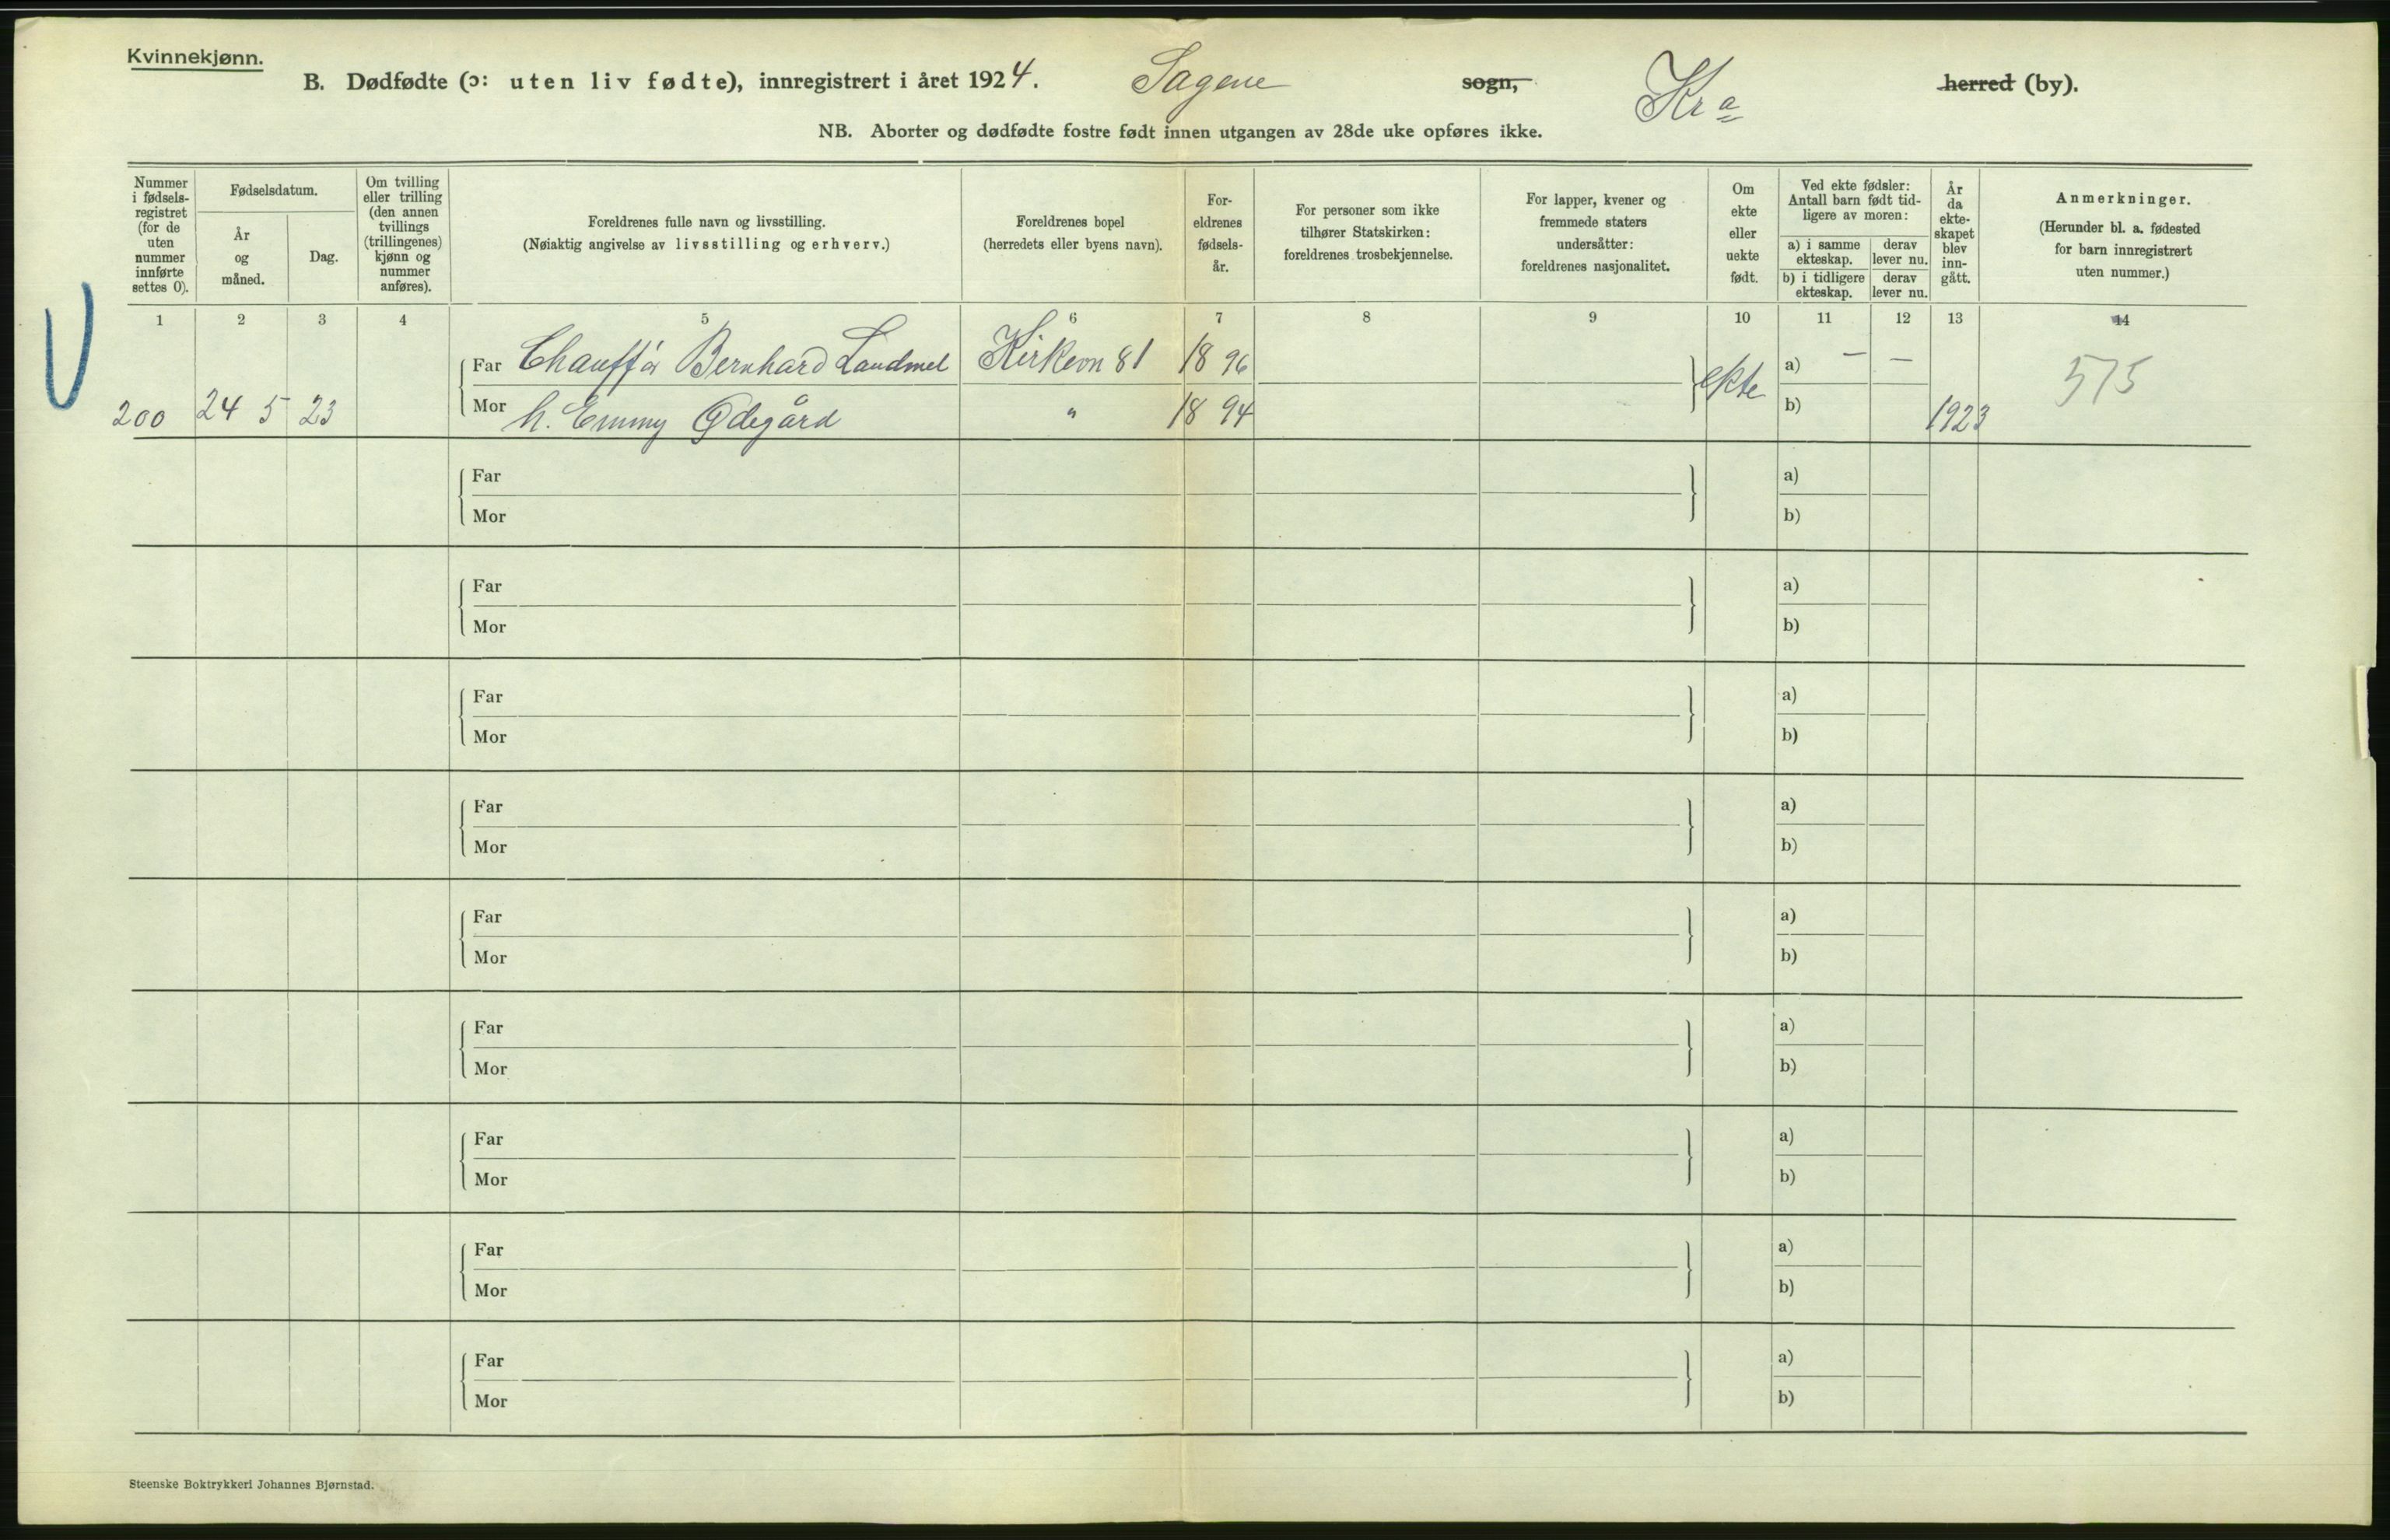 Kvinnekjønn.
B. Dødfødte (ɔ: uten liv fødte), innregistrert i året 1924. Sagene sogn, Kra herred (by).
NB. Aborter og dødfødte fostre født innen utgangen av 28de uke opføres ikke.
Nummer
i fødsels-
registret
(for de
uten
nummer
innførte
settes 0).
Fødselsdatum.
År
og
måned.
Dag.
Om tvilling
eller trilling
(den annen
tvillings
(trillingenes)
kjønn og
nummer
anføres).
Foreldrenes fulle navn og livsstilling.
(Nøiaktig angivelse av livsstilling og erhverv.)
Foreldrenes bopel
(herredets eller byens navn).
For-
eldrenes
fødsels-
år.
For personer som ikke
tilhører Statskirken:
foreldrenes trosbekjennelse.
For lapper, kvener og
fremmede staters
undersåtter:
foreldrenes nasjonalitet.
Om
ekte
eller
uekte
født.
Ved ekte fødsler:
Antall barn født tid-
ligere av moren:
a) i samme
ekteskap.
derav
lever nu.
b) i tidligere
ekteskap.
derav
lever nu.
År
da
ekte-
skapet
blev
inn-
gått.
Anmerkninger.
(Herunder bl. a. fødested
for barn innregistrert
uten nummer.)
1 2 3 4 5 6 7 8 9 10 11 12 13 14
Far Chauffør Bernhard Landmel Kirkevn 81 1896 a) — —
200 24 5 23 Mor h. Emmy Ødegård " 1894 ekte b) 1923 575
Far a)
Mor b)
Far a)
Mor b)
Far a)
Mor b)
Far a)
Mor b)
Far a)
Mor b)
Far a)
Mor b)
Far a)
Mor b)
Far a)
Mor b)
Far a)
Mor b)
Steenske Boktrykkeri Johannes Bjørnstad.